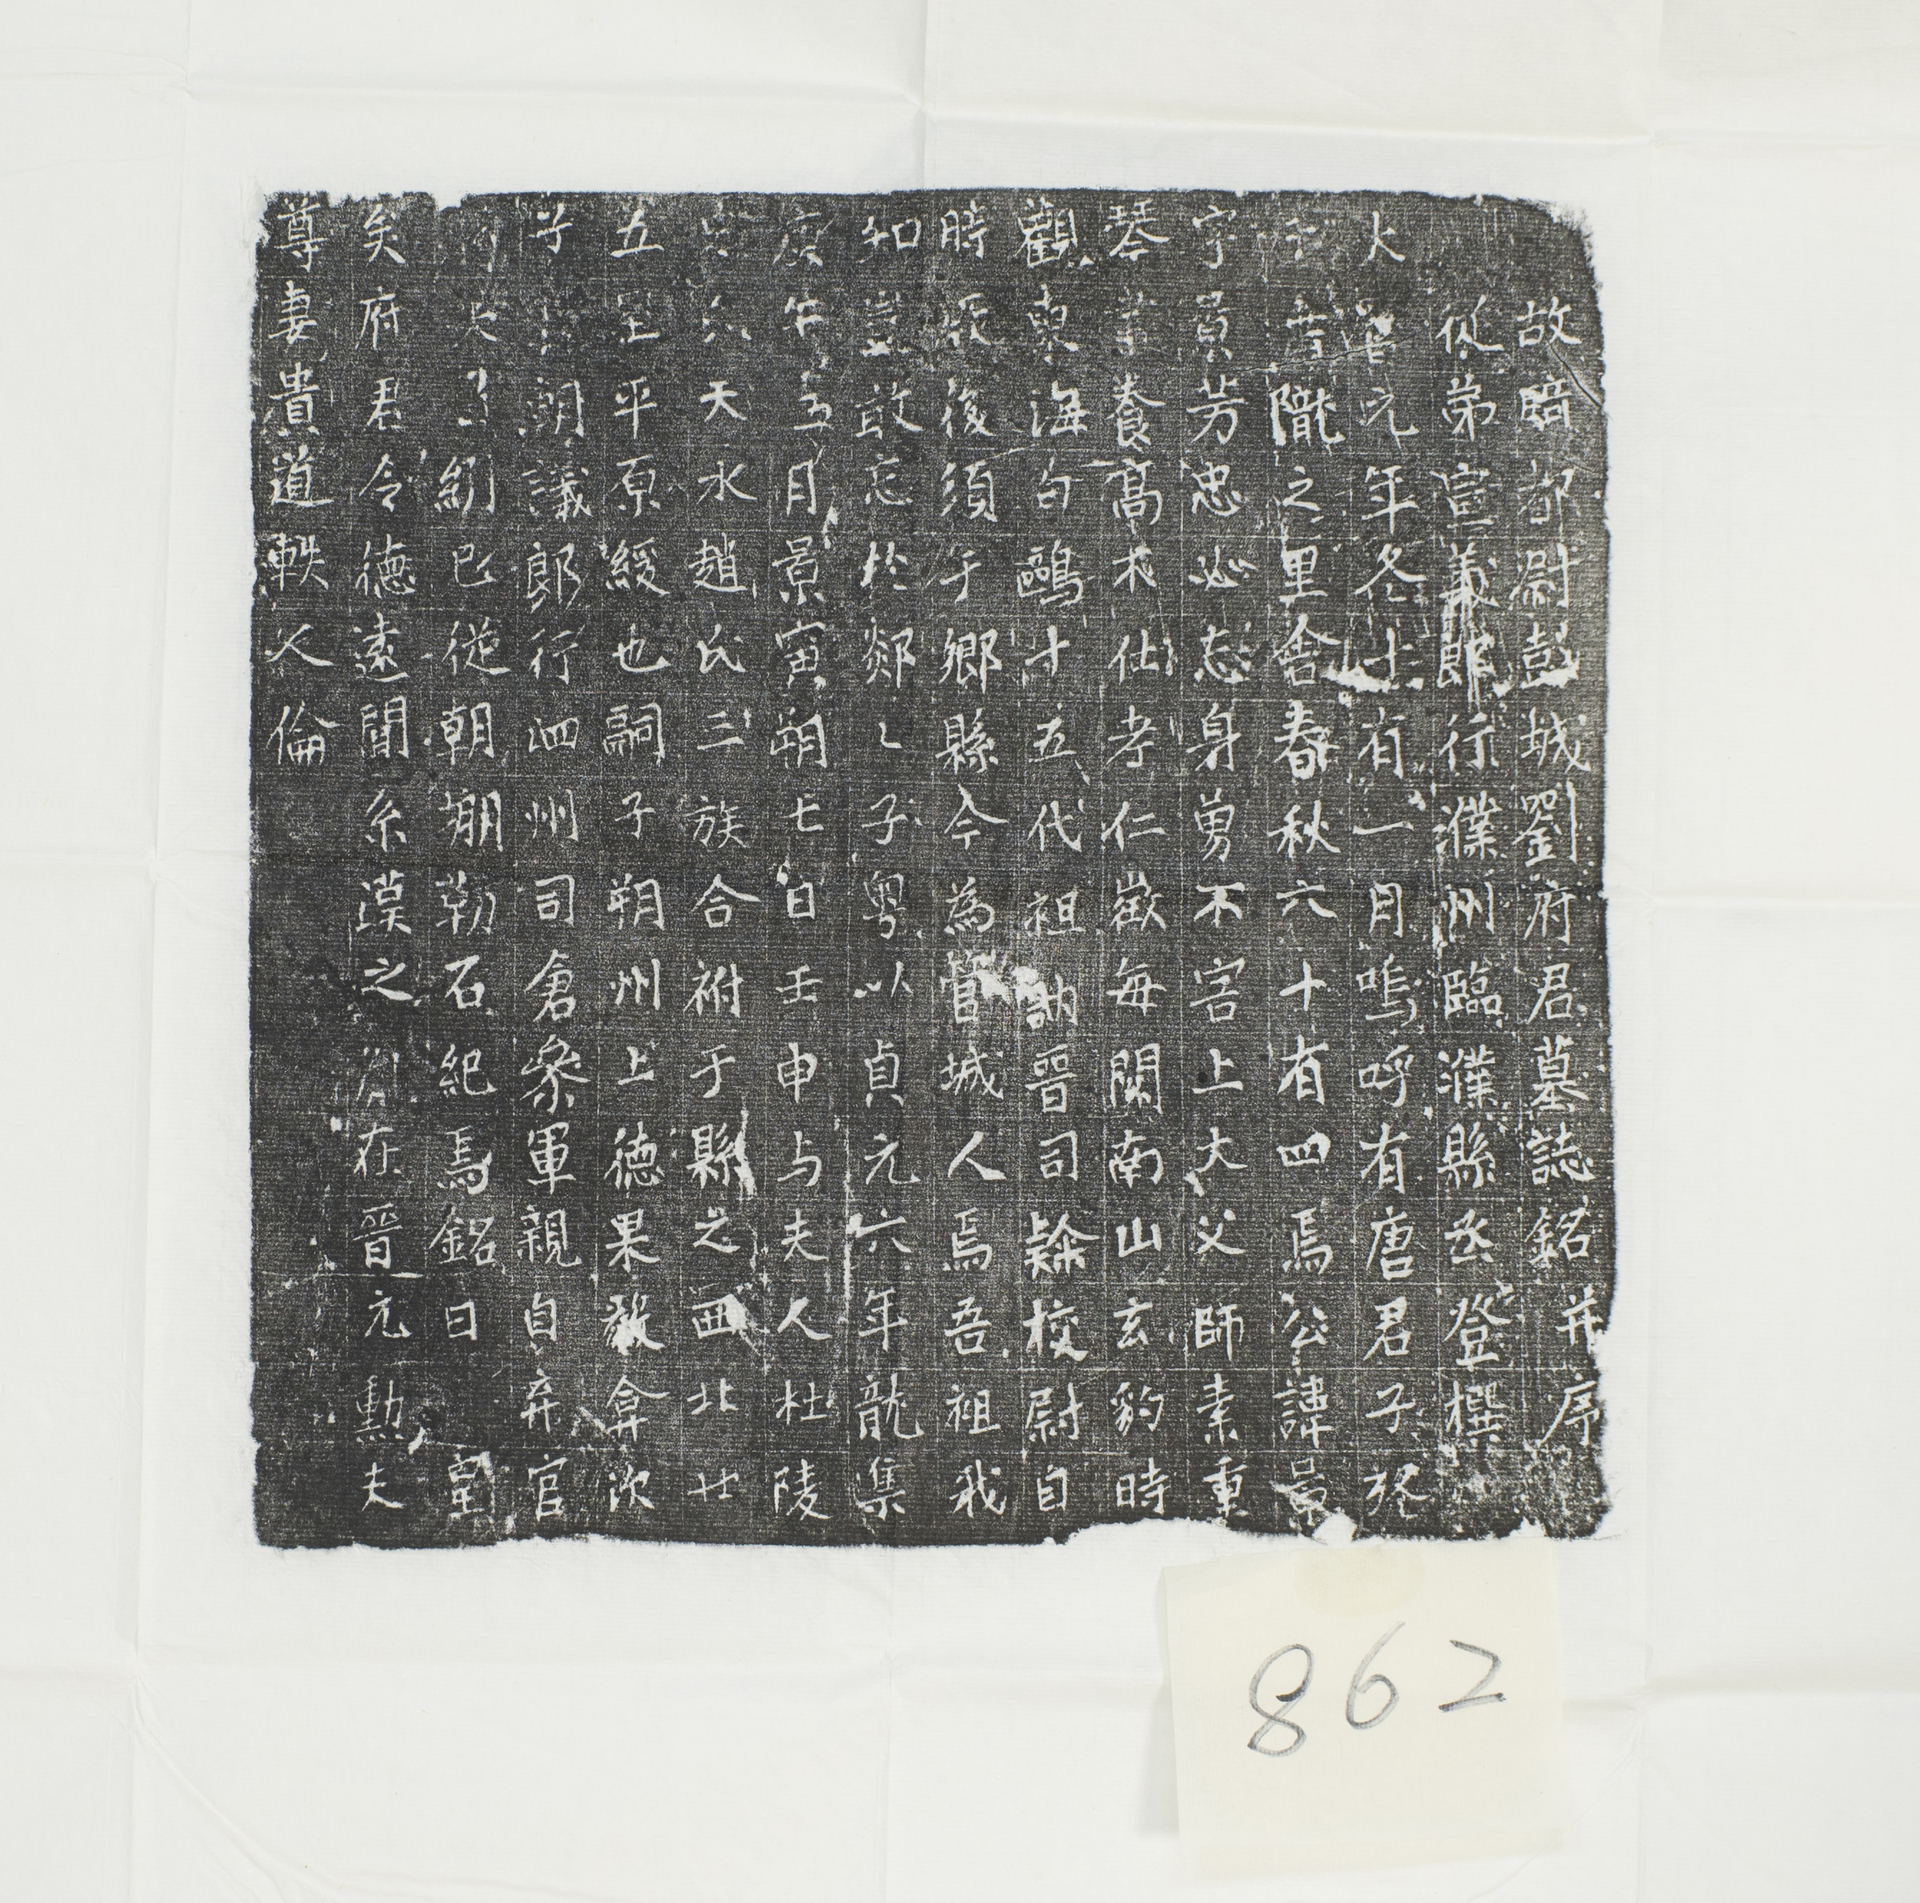 故暗都尉彭城劉府君墓誌銘并序
從弟宣義郎行濮州臨濮縣丞登撰
大曆元年冬十有一月嗚呼有唐君子歿
于章隴之里舍春秋六十有四焉公諱景
字貢芳忠必忘身勇不害上大父師素重
琴書養高不仕孝仁嶽每闕南山玄豹時
觀東海白鷗才五代祖訥晉司隸校尉自
時厥後須于鄉縣今為管城人焉吾祖我
知豈敢忘於郯々子粵以貞元六年龍集
庚午五月景寅朔七日壬申与夫人杜陵
天水趙氏三族合祔于縣之西北廿
五里平原綏也嗣子朔州上德果毅弇次
子朝議郎行泗州司倉參軍親自弃官
紉已從朝堋勒石紀焉銘曰皇
矣府君令德遠聞系漢之在晉元勳夫
尊妻貴道軼人倫
862